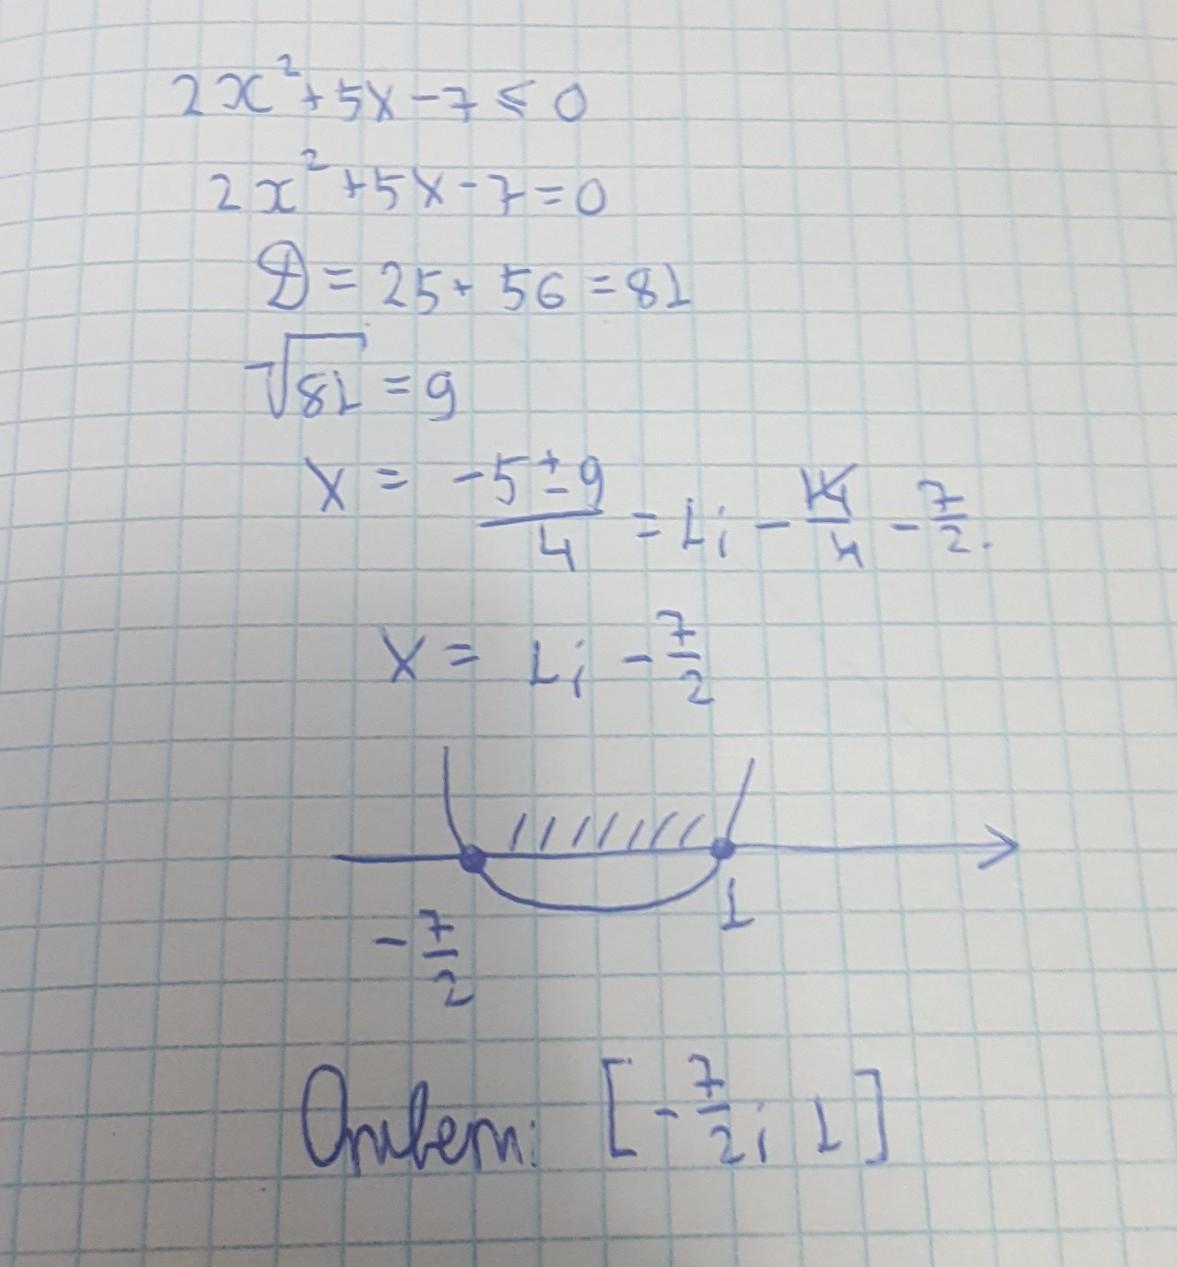 2x² + 5x - 7 ≤ 0
2x² + 5x - 7 = 0
D = 25 + 56 = 81
√81 = 9
x = (-5 ± 9)/4 = 1; - 14/4 - 7/2.
x = 1; - 7/2
- 7/2 1
Ответ: [- 7/2; 1]